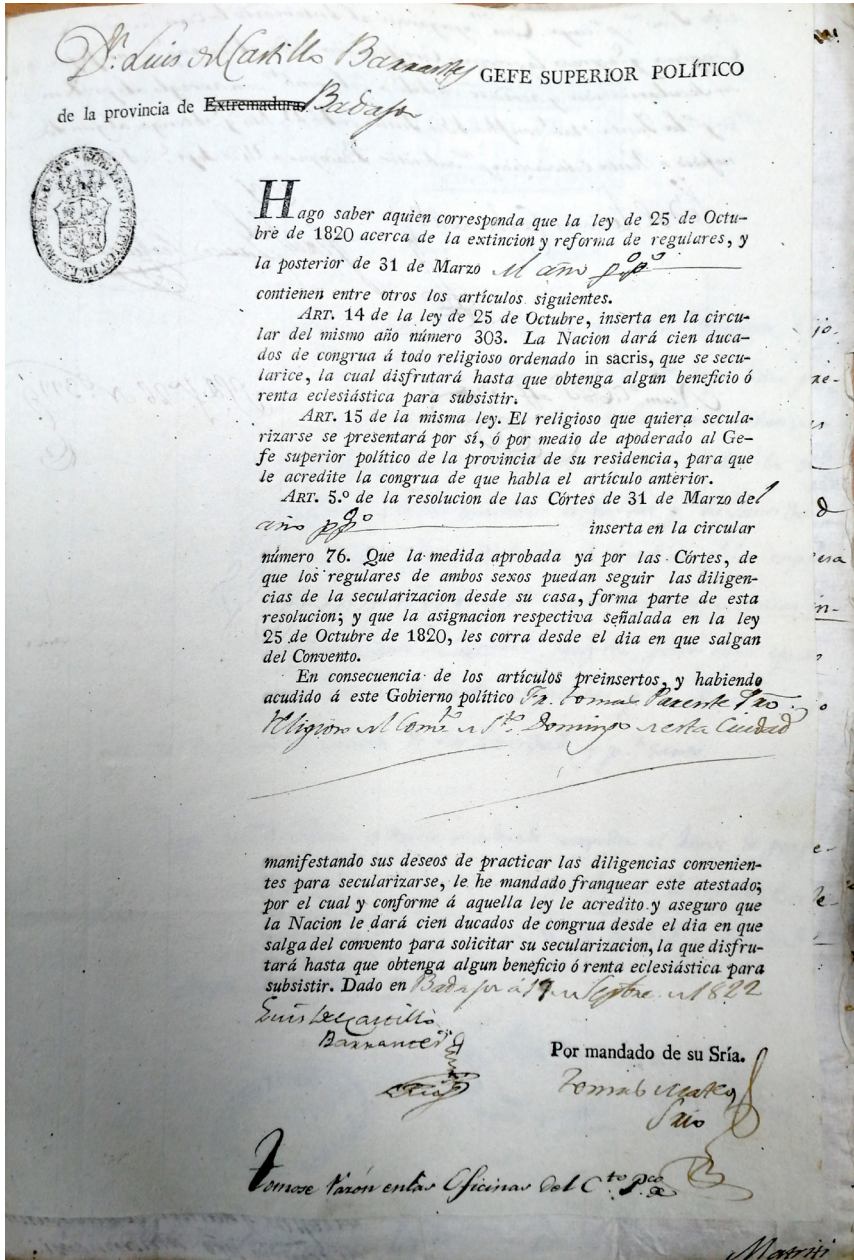 Dn. Luis del Castillo Barrantes GEFE SUPERIOR POLÍTICO
de la provincia de Extremadura. Badajoz
Hago saber aquien corresponda que la ley de 25 de Octu-
bre de 1820 acerca de la extincion y reforma de regulares, y
la posterior de 31 de Marzo del año ppº
contienen entre otros los artículos siguientes.
ART. 14 de la ley de 25 de Octubre, inserta en la circu-
lar del mismo año número 303. La Nacion dará cien duca-
dos de congrua á todo religioso ordenado in sacris, que se secu-
larice, la cual disfrutará hasta que obtenga algun beneficio ó
renta eclesiástica para subsistir.
ART. 15 de la misma ley. El religioso que quiera secula-
rizarse se presentará por sí, ó por medio de apoderado al Ge-
fe superior político de la provincia de su residencia, para que
le acredite la congrua de que habla el artículo anterior.
ART. 5.º de la resolucion de las Córtes de 31 de Marzo del
año ppº inserta en la circular
número 76. Que la medida aprobada ya por las Córtes, de
que los regulares de ambos sexos puedan seguir las diligen-
cias de la secularizacion desde su casa, forma parte de esta
resolucion; y que la asignacion respectiva señalada en la ley
25 de Octubre de 1820, les corra desde el dia en que salgan
del Convento.
En consecuencia de los artículos preinsertos, y habiendo
acudido á este Gobierno político Fr. Tomas Parente Pro.
Religioso del Comto de Sto. Domingo de esta Ciudad
manifestando sus deseos de practicar las diligencias convenien-
tes para secularizarse, le he mandado franquear este atestado;
por el cual y conforme á aquella ley le acredito y aseguro que
la Nacion le dará cien ducados de congrua desde el dia en que
salga del convento para solicitar su secularizacion, la que disfru-
tará hasta que obtenga algun beneficio ó renta eclesiástica para
subsistir. Dado en Badajoz á de Septbre. de 1822
Luis del Castillo
Barrantes
Por mandado de su Sría.
Tomas Mateo
Srio
Tomose razón en las Oficinas del Cto. Pco.